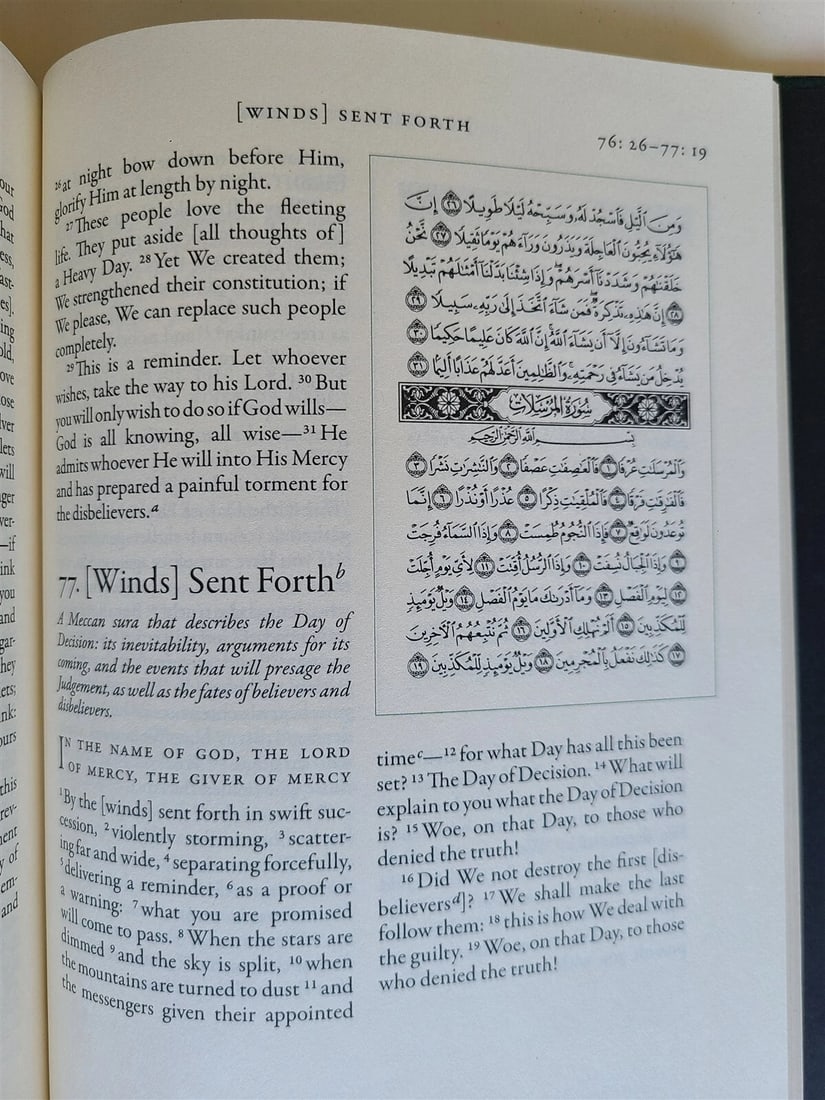 [WINDS] SENT FORTH
76: 26–77: 19
²⁶at night bow down before Him,
glorify Him at length by night.
²⁷These people love the fleeting
life. They put aside [all thoughts of]
a Heavy Day. ²⁸ Yet We created them;
We strengthened their constitution; if
We please, We can replace such people
completely.
²⁹This is a reminder. Let whoever
wishes, take the way to his Lord. ³⁰ But
you will only wish to do so if God wills—
God is all knowing, all wise—³¹ He
admits whoever He will into His Mercy
and has prepared a painful torment for
the disbelievers.ᵃ
77. [Winds] Sent Forthᵇ
A Meccan sura that describes the Day of
Decision: its inevitability, arguments for its
coming, and the events that will presage the
Judgement, as well as the fates of believers and
disbelievers.
IN THE NAME OF GOD, THE LORD
OF MERCY, THE GIVER OF MERCY
¹By the [winds] sent forth in swift suc-
cession, ²violently storming, ³scatter-
ing far and wide, ⁴separating forcefully,
⁵delivering a reminder, ⁶as a proof or
a warning: ⁷what you are promised
will come to pass. ⁸ When the stars are
dimmed ⁹and the sky is split, ¹⁰when
the mountains are turned to dust ¹¹ and
the messengers given their appointed
وَمِنَ ٱلَّيْلِ فَٱسْجُدْ لَهُۥ وَسَبِّحْهُ لَيْلًا طَوِيلًا ٢٦ إِنَّ
هَٰٓؤُلَآءِ يُحِبُّونَ ٱلْعَاجِلَةَ وَيَذَرُونَ وَرَآءَهُمْ يَوْمًا ثَقِيلًا ٢٧ نَّحْنُ
خَلَقْنَٰهُمْ وَشَدَدْنَآ أَسْرَهُمْ ۖ وَإِذَا شِئْنَا بَدَّلْنَآ أَمْثَٰلَهُمْ تَبْدِيلًا
٢٨ إِنَّ هَٰذِهِۦ تَذْكِرَةٌ ۖ فَمَن شَآءَ ٱتَّخَذَ إِلَىٰ رَبِّهِۦ سَبِيلًا ٢٩
وَمَا تَشَآءُونَ إِلَّآ أَن يَشَآءَ ٱللَّهُ ۚ إِنَّ ٱللَّهَ كَانَ عَلِيمًا حَكِيمًا ٣٠
يُدْخِلُ مَن يَشَآءُ فِى رَحْمَتِهِۦ ۚ وَٱلظَّٰلِمِينَ أَعَدَّ لَهُمْ عَذَابًا أَلِيمًۢا ٣١
سُورَةُ الْمُرْسَلَاتِ
بِسْمِ ٱللَّهِ ٱلرَّحْمَٰنِ ٱلرَّحِيمِ
وَٱلْمُرْسَلَٰتِ عُرْفًا ١ فَٱلْعَٰصِفَٰتِ عَصْفًا ٢ وَٱلنَّٰشِرَٰتِ نَشْرًا ٣
فَٱلْفَٰرِقَٰتِ فَرْقًا ٤ فَٱلْمُلْقِيَٰتِ ذِكْرًا ٥ عُذْرًا أَوْ نُذْرًا ٦ إِنَّمَا
تُوعَدُونَ لَوَٰقِعٌ ٧ فَإِذَا ٱلنُّجُومُ طُمِسَتْ ٨ وَإِذَا ٱلسَّمَآءُ فُرِجَتْ
٩ وَإِذَا ٱلْجِبَالُ نُسِفَتْ ١٠ وَإِذَا ٱلرُّسُلُ أُقِّتَتْ ١١ لِأَىِّ يَوْمٍ أُجِّلَتْ
١٢ لِيَوْمِ ٱلْفَصْلِ ١٣ وَمَآ أَدْرَىٰكَ مَا يَوْمُ ٱلْفَصْلِ ١٤ وَيْلٌ يَوْمَئِذٍ
لِّلْمُكَذِّبِينَ ١٥ أَلَمْ نُهْلِكِ ٱلْأَوَّلِينَ ١٦ ثُمَّ نُتْبِعُهُمُ ٱلْءَاخِرِينَ
١٧ كَذَٰلِكَ نَفْعَلُ بِٱلْمُجْرِمِينَ ١٨ وَيْلٌ يَوْمَئِذٍ لِّلْمُكَذِّبِينَ ١٩
timeᶜ—¹² for what Day has all this been
set? ¹³ The Day of Decision. ¹⁴ What will
explain to you what the Day of Decision
is? ¹⁵ Woe, on that Day, to those who
denied the truth!
¹⁶ Did We not destroy the first [dis-
believersᵈ]? ¹⁷ We shall make the last
follow them: ¹⁸ this is how We deal with
the guilty. ¹⁹ Woe, on that Day, to those
who denied the truth!